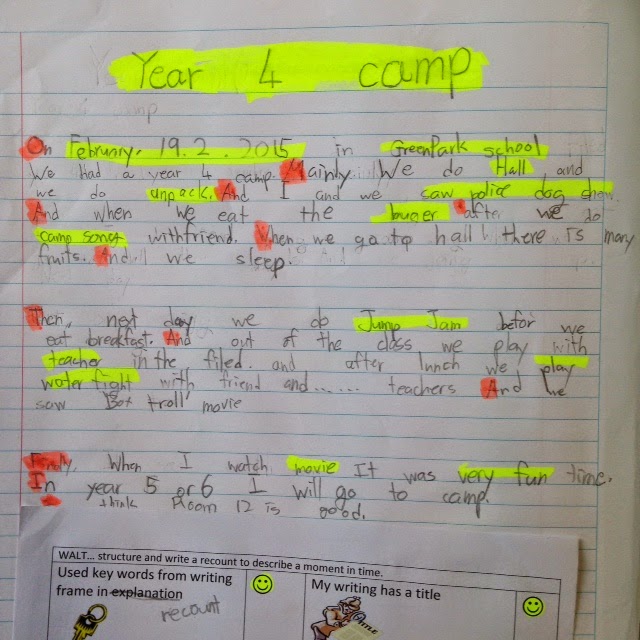 Year 4 camp
On February. 19. 2. 2015 in GreenPark school
We had a year 4 camp. Mainly We do Hall and
we do unpack. And I and we saw police dog show
And when we eat the burger after we do
camp song withfriend. When we go to hall there is many
fruits. And we sleep.
Then, next day we do Jump Jam befor we
eat breakfast. And out of the class we play with
teacher in the filed. and after lunch we play
water fight with friend and...... teachers And we
saw Box troll movie
Finally, When I watch movie It was very fun time.
In year 5 or 6 I will go to camp.
think Room 12 is good.
WALT... structure and write a recount to describe a moment in time.
Used key words from writing
frame in explanation
recount
My writing has a title